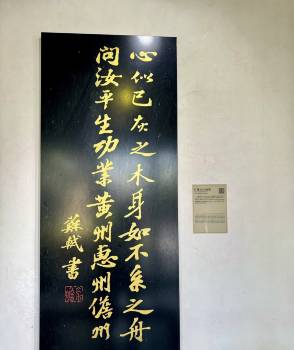 心似已灰之木身如不系之舟
问汝平生功業黄州惠州儋州
蘇軾書